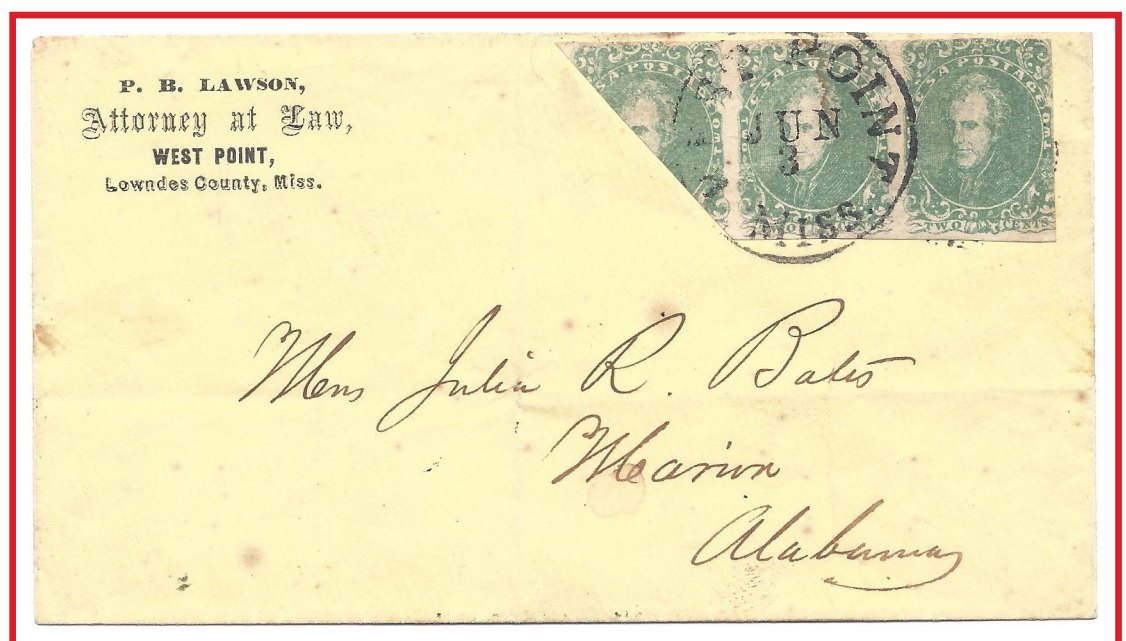 P. B. LAWSON,
Attorney at Law,
WEST POINT,
Lowndes County, Miss.
POINT
JUN
3
MISS.
SA POSTA
CSA POSTA
CSA POSTAGE
TWO CENTS
TWO CENTS
Mrs Julia R. Bates
Marion
Alabama